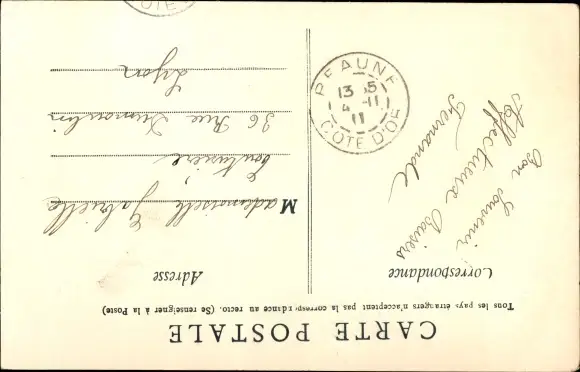 CARTE POSTALE
Tous les pays étrangers n'acceptent pas la correspondance au recto. (Se renseigner à la Poste)
Correspondance
Bon Souvenir
Affectueux Baisers
Fernande
Adresse
Mademoiselle Gabrielle
Couturière
36 Rue Dumoulin
Lyon
BEAUNE
13 15
4 -11
11
COTE D'OR
COTE